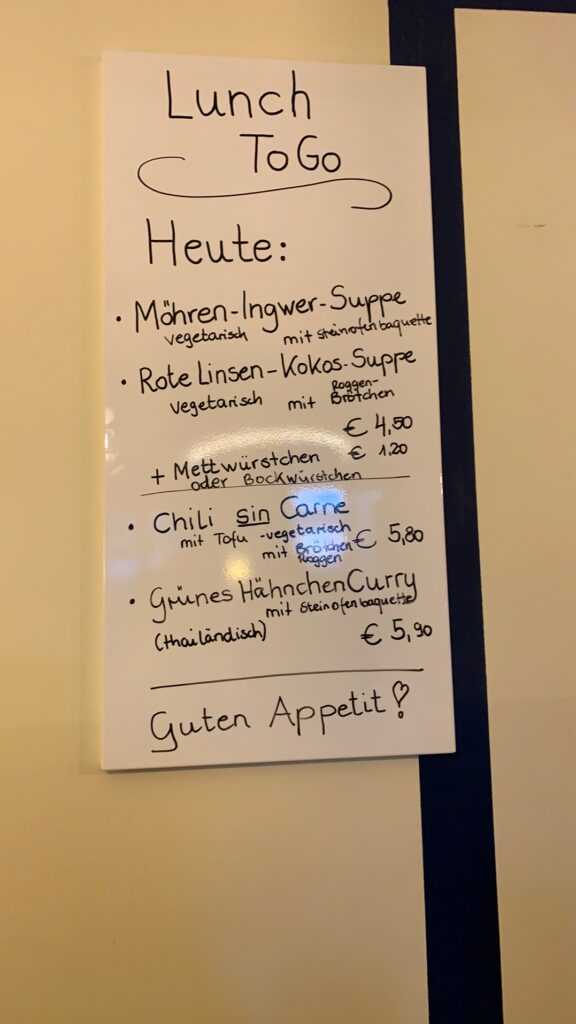 Lunch
To Go
Heute:
• Möhren-Ingwer-Suppe
vegetarisch mit Steinofenbaquette
• Rote Linsen-Kokos-Suppe
vegetarisch mit Roggen-
Brötchen
€ 4,50
+ Mettwürstchen € 1,20
oder Bockwürstchen
• Chili sin Carne
mit Tofu -vegetarisch
mit Brötchen € 5,80
Roggen
• Grünes HähnchenCurry
mit Steinofenbaquette
(thailändisch) € 5,90
Guten Appetit!